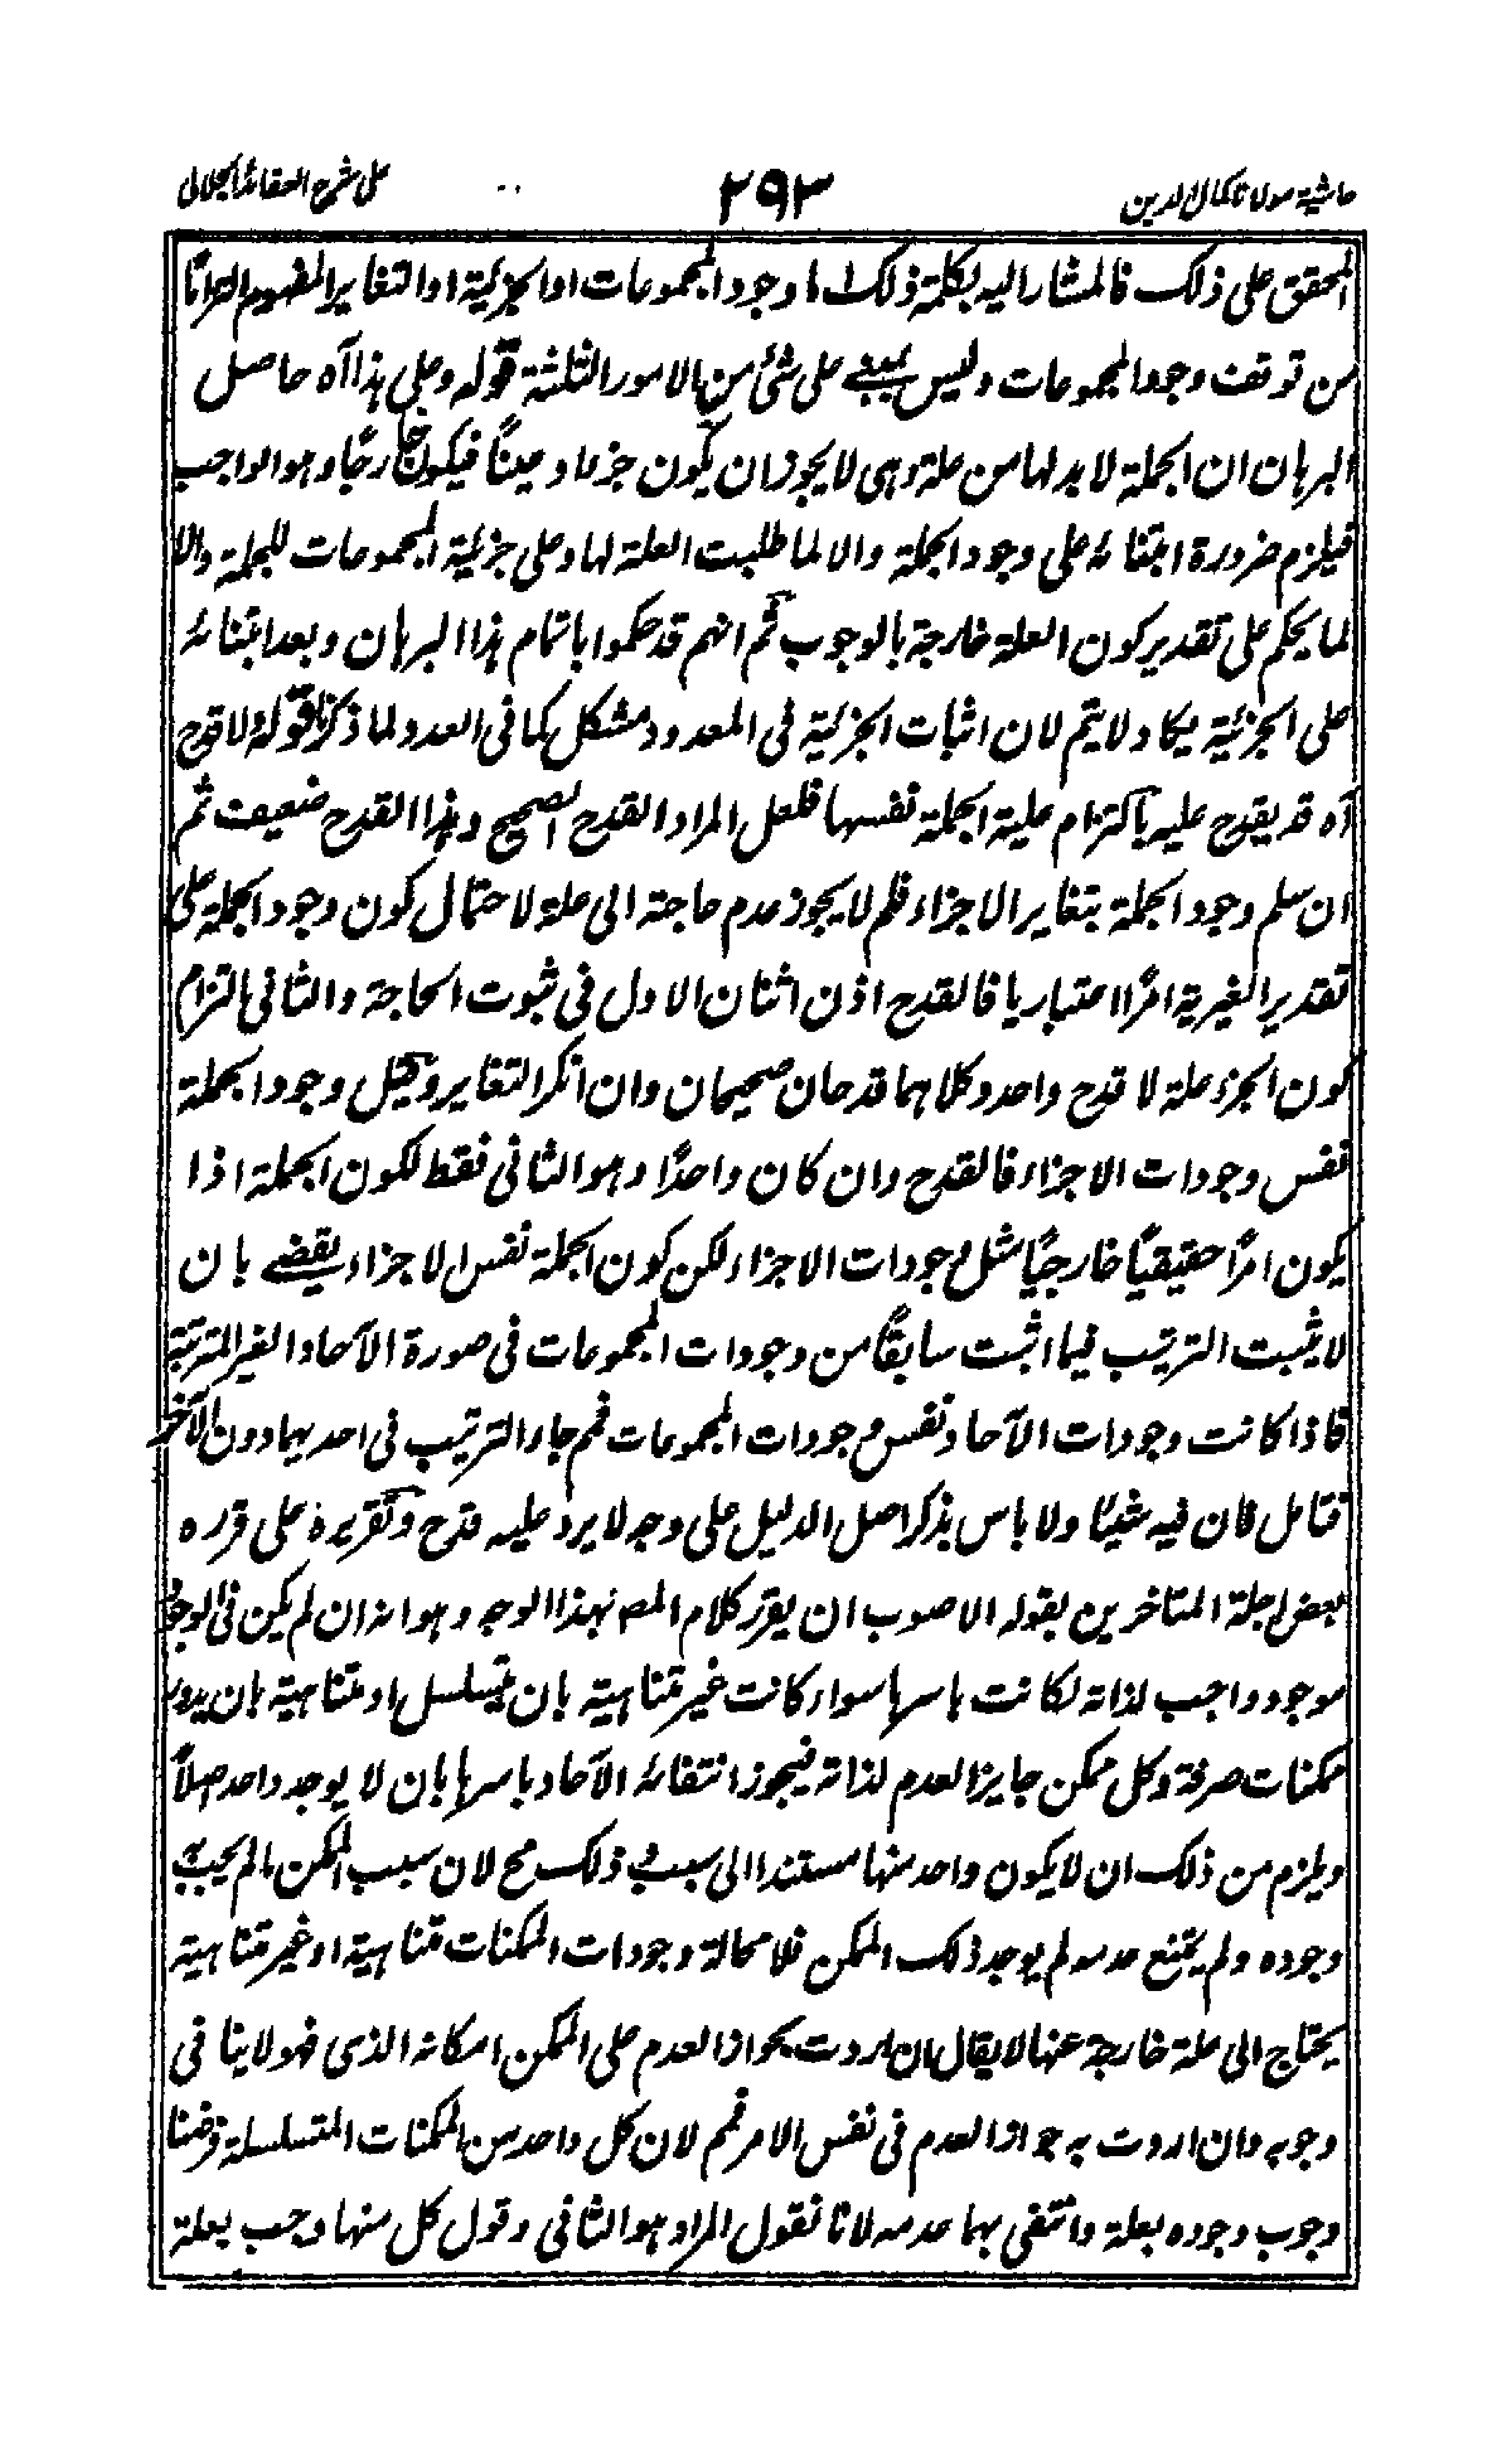 حاشية مولانا كمال الدين
٢٩٣
على شرح العقائد الجلالى
المحقق على ذلك فالمشار اليه بكلمة ذلك اما وجود المجموعات او الجزئية او التغاير المفهوم التزاما
من توقف وجود المجموعات وليس يبنى على شئ من الامور الثلثة قوله وعلى هذا آه حاصل
البرهان ان الجملة لا بد لها من علة وهى لا يجوز ان يكون جزءا وعينًا فيكون خارجًا وهو الواجب
فيلزم ضرورة ابتنائه على وجود الجملة والا لما طلبت العلة لها وعلى جزئية المجموعات للجملة والا
لما يحكم على تقدير كون العلة خارجة بالوجوب ثم انهم قد حكموا باتمام هذا البرهان وبعد ابتنائه
على الجزئية يكاد لا يتم لان اثبات الجزئية فى المعدود مشكل كما فى العدد ولما ذكرنا قوله لا قدح
آه قد يقدح عليه بالتزام علية الجملة نفسها فلعل المراد القدح الصحيح وهذا القدح ضعيف ثم
ان سلم وجود الجملة بتغاير الاجزاء فلم لا يجوز عدم حاجته الى علة لاحتمال كون وجود الجملة على
تقدير الغيرية امرًا اعتباريا فالقدح اذن اثنان الاول فى ثبوت الحاجة والثانى التزام
كون الجزء علة لا قدح واحد وكلاهما قدحان صحيحان وان انكر التغاير وتخيل وجود الجملة
نفس وجودات الاجزاء فالقدح وان كان واحدًا وهو الثانى فقط لكون الجملة اذا
يكون امرًا حقيقيًا خارجيًا مثل وجودات الاجزاء لكن كون الجملة نفس الاجزاء يقضى بان
لا يثبت الترتيب فيما اثبت سابقًا من وجودات المجموعات فى صورة الآحاد الغير المترتبة
فاذا كانت وجودات الآحاد نفس وجودات المجموعات فلم جاز الترتيب فى احديهما دون الآخر
فتامل فان فيه شيئا ولا باس بذكر اصل الدليل على وجه لا يرد عليه قدح وتقريره على قرره
بعض اجلة المتاخرين بقوله الاصوب ان يقرر كلام المصـ بهذا الوجه وهو انه ان لم يكن فى الوجود
موجود واجب لذاته لكانت باسرها سواء كانت غير متناهية بان يتسلسل او متناهية بان يدور
ممكنات صرفة وكل ممكن جايز العدم لذاته فيجوز انتفائه الآحاد باسرها بان لا يوجد واحد اصلاً
ويلزم من ذلك ان لا يكون واحد منها مستندا الى سبب وذلك مح لان سبب الممكن ما لم يجب به
وجوده ولم يمتنع عدمه لم يوجد ذلك الممكن فلا محالة وجودات الممكنات متناهية او غير متناهية
يحتاج الى علة خارجة عنها لا يقال ان اردت بجواز العدم على الممكن امكانه الذى فهو لا ينافى
وجوبه وان اردت به جواز العدم فى نفس الامر فمم لان كل واحد من الممكنات المتسلسلة فرضنا
وجوب وجوده بعلة وانتفى بها عدمه لانا نقول المراد هو الثانى وقول كل منها وجب بعلة